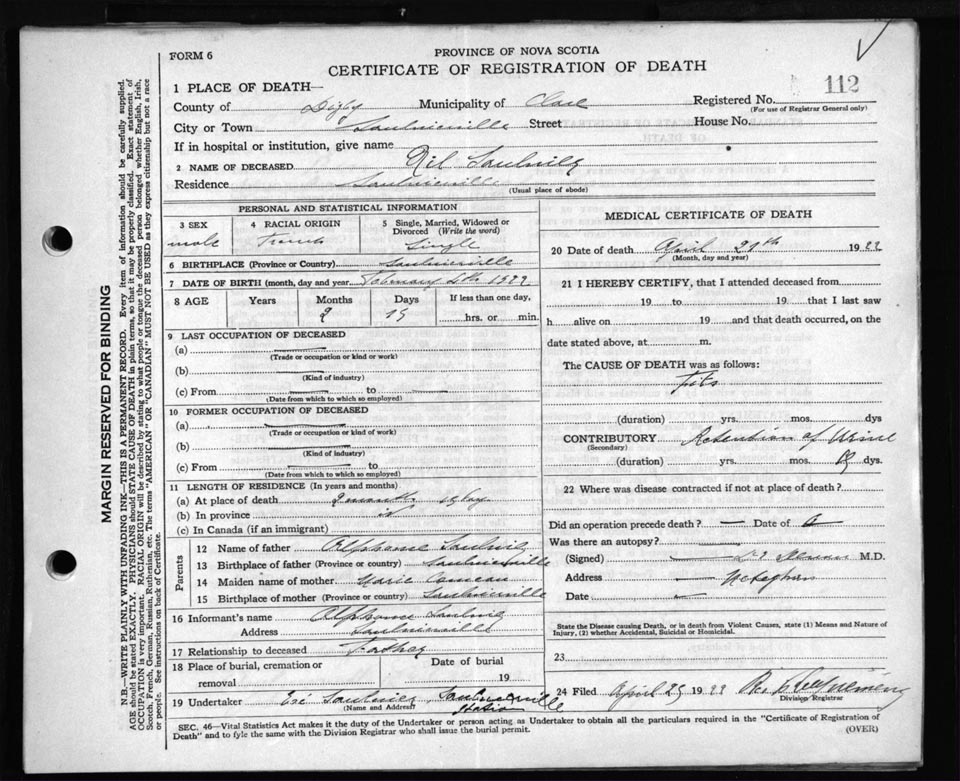 FORM 6
PROVINCE OF NOVA SCOTIA
CERTIFICATE OF REGISTRATION OF DEATH
112
1 PLACE OF DEATH—
County of Digby Municipality of Clare Registered No.
(For use of Registrar General only)
City or Town Saulnierville Street House No.
If in hospital or institution, give name
2 NAME OF DECEASED Saulnier
Residence Saulnierville
(Usual place of abode)
PERSONAL AND STATISTICAL INFORMATION
3 SEX
male
4 RACIAL ORIGIN
French
5 Single, Married, Widowed or Divorced (Write the word)
Single
6 BIRTHPLACE (Province or Country) Saulnierville
7 DATE OF BIRTH (month, day and year) February
8 AGE Years Months Days If less than one day,
2 15 hrs. or min.
9 LAST OCCUPATION OF DECEASED
(a)
(Trade or occupation or kind or work)
(b)
(Kind of industry)
(c) From to
(Date from which to which so employed)
10 FORMER OCCUPATION OF DECEASED
(a)
(Trade or occupation or kind of work)
(b)
(Kind of industry)
(c) From to
(Date from which to which so employed)
11 LENGTH OF RESIDENCE (In years and months)
(a) At place of death 2 months
(b) In province
(c) In Canada (if an immigrant)
Parents
12 Name of father Alphonse Saulnier
13 Birthplace of father (Province or country) Saulnierville
14 Maiden name of mother Marie Comeau
15 Birthplace of mother (Province or country) Saulnierville
16 Informant's name Alphonse Saulnier
Address Saulnierville
17 Relationship to deceased Father
18 Place of burial, cremation or removal
Date of burial
19
19 Undertaker Saulnier, Saulnierville Station
(Name and Address)
MEDICAL CERTIFICATE OF DEATH
20 Date of death April 19
(Month, day and year)
21 I HEREBY CERTIFY, that I attended deceased from
19 to 19 that I last saw
h alive on 19 and that death occurred, on the
date stated above, at m.
The CAUSE OF DEATH was as follows:
Fits
(duration) yrs. mos. dys
CONTRIBUTORY Retention of Urine
(Secondary)
(duration) yrs. mos. dys.
22 Where was disease contracted if not at place of death?
Did an operation precede death? — Date of
Was there an autopsy?
(Signed) M.D.
Address Meteghan
Date
State the Disease causing Death, or in death from Violent Causes, state (1) Means and Nature of
Injury, (2) whether Accidental, Suicidal or Homicidal.
23
24 Filed April 19
Division Registrar
SEC. 46—Vital Statistics Act makes it the duty of the Undertaker or person acting as Undertaker to obtain all the particulars required in the "Certificate of Registration of
Death" and to fyle the same with the Division Registrar who shall issue the burial permit.
(OVER)
MARGIN RESERVED FOR BINDING
N.B.—WRITE PLAINLY WITH UNFADING INK—THIS IS A PERMANENT RECORD. Every item of information should be carefully supplied.
AGE should be stated EXACTLY. PHYSICIANS should STATE CAUSE OF DEATH in plain terms, so that it may be properly classified. Exact statement of
OCCUPATION is very important. RACIAL ORIGIN will be described by stating to what people or tongue the deceased person belonged whether English, Irish,
Scotch, French, German, Russian, Ruthenian, etc. The terms "AMERICAN" OR "CANADIAN" MUST NOT BE USED as they express citizenship but not a race
or people. See instructions on back of Certificate.